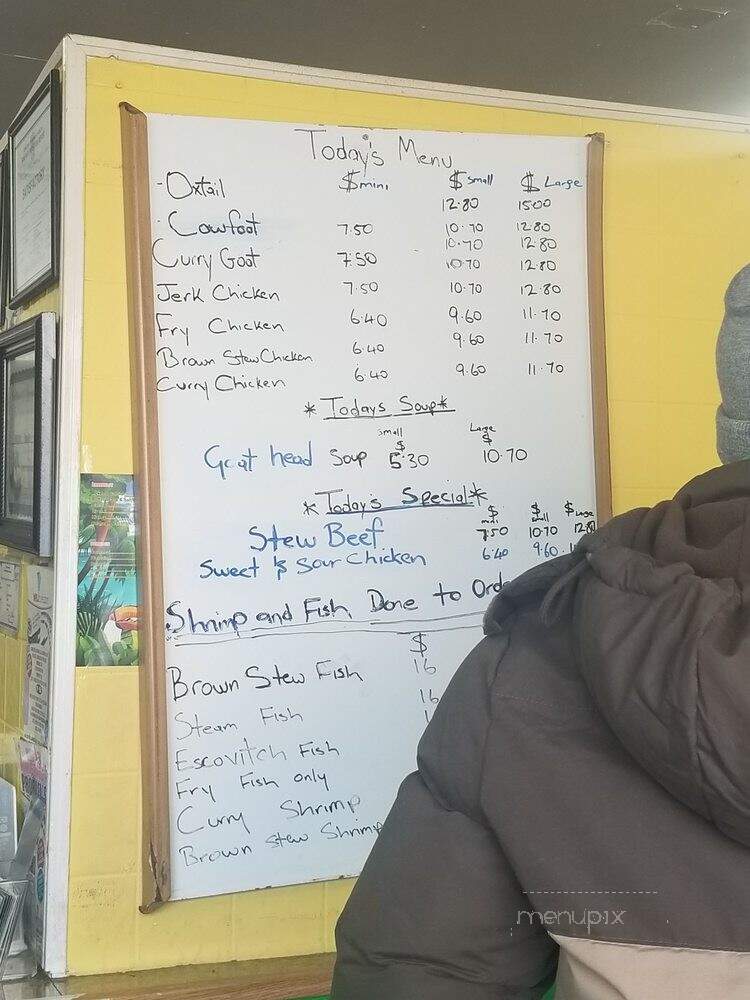 Today's Menu
$mini $small $Large
- Oxtail 12.80 15.00
- Cowfoot 7.50 10.70 12.80
10.70 12.80
Curry Goat 7.50 10.70 12.80
Jerk Chicken 7.50 10.70 12.80
Fry Chicken 6.40 9.60 11.70
Brown Stew Chicken 6.40 9.60 11.70
Curry Chicken 6.40 9.60 11.70
* Todays Soup *
small Large
$ $
Goat head Soup 5.30 10.70
* Today's Special *
$ $ $ Large
mini small
Stew Beef 7.50 10.70 12.80
Sweet & Sour Chicken 6.40 9.60
Shrimp and Fish Done to
$
Brown Stew Fish 16
Steam Fish 16
Escovitch Fish
Fry Fish only
Curry Shrimp
Brown stew Shrimp
menupix